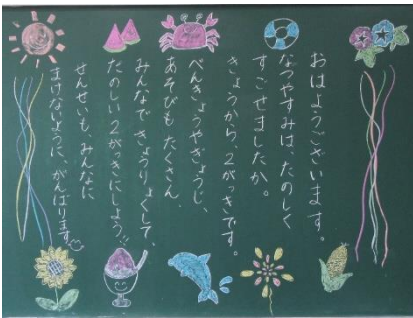 おはようございます。
なつやすみは、たのしく
すごせましたか。
きょうから、2がっきです。
べんきょうやぎょうじ、
あそびもたくさん
みんなできょうりょくして、
たのしい2がっきにしよう!!
せんせいも、みんなに
まけないように、がんばります。